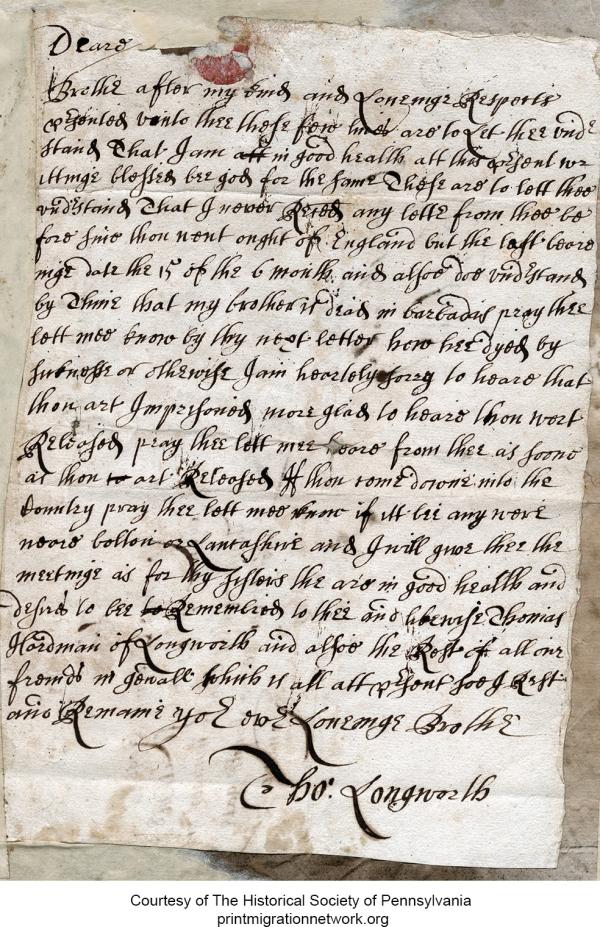 Deare
Brothe after my kind and Loveinge Respects
p̲sented vnto thee these few lines are to Let thee vnde
stand That I am att in good health att this p̲sent wr
ittinge blessed bee god for the same These are to lett thee
vndstand That I never Reced any lette from thee be
fore sine thou went ought of England but the last beare
inge date the 15 of the 6 month and alsoe doe vndstand
by Thine that my brother is dead in barbadas pray thee
lett mee know by thy next letter how hee dyed by
sicknesse or othewise I am heartely sorry to heare that
thou art Imprisoned more glad to heare thou wert
Released pray thee lett mee heare from thee as soone
as thou to art Released If thou come downe into the
Country pray thee lett mee know if itt bee any were
neare bolton or Lancashire and I will give thee the
meetinge as for thy sisters the are in good health and
desires to bee to Remembred to thee and likewise Thomas
Hardman of Longworth and alsoe the Rest of all our
freinds in genall which is all att p̲sent soe I Rest
and Remaine yor ever Loveinge Brothe
Tho: Longworth
Courtesy of The Historical Society of Pennsylvania
printmigrationnetwork.org